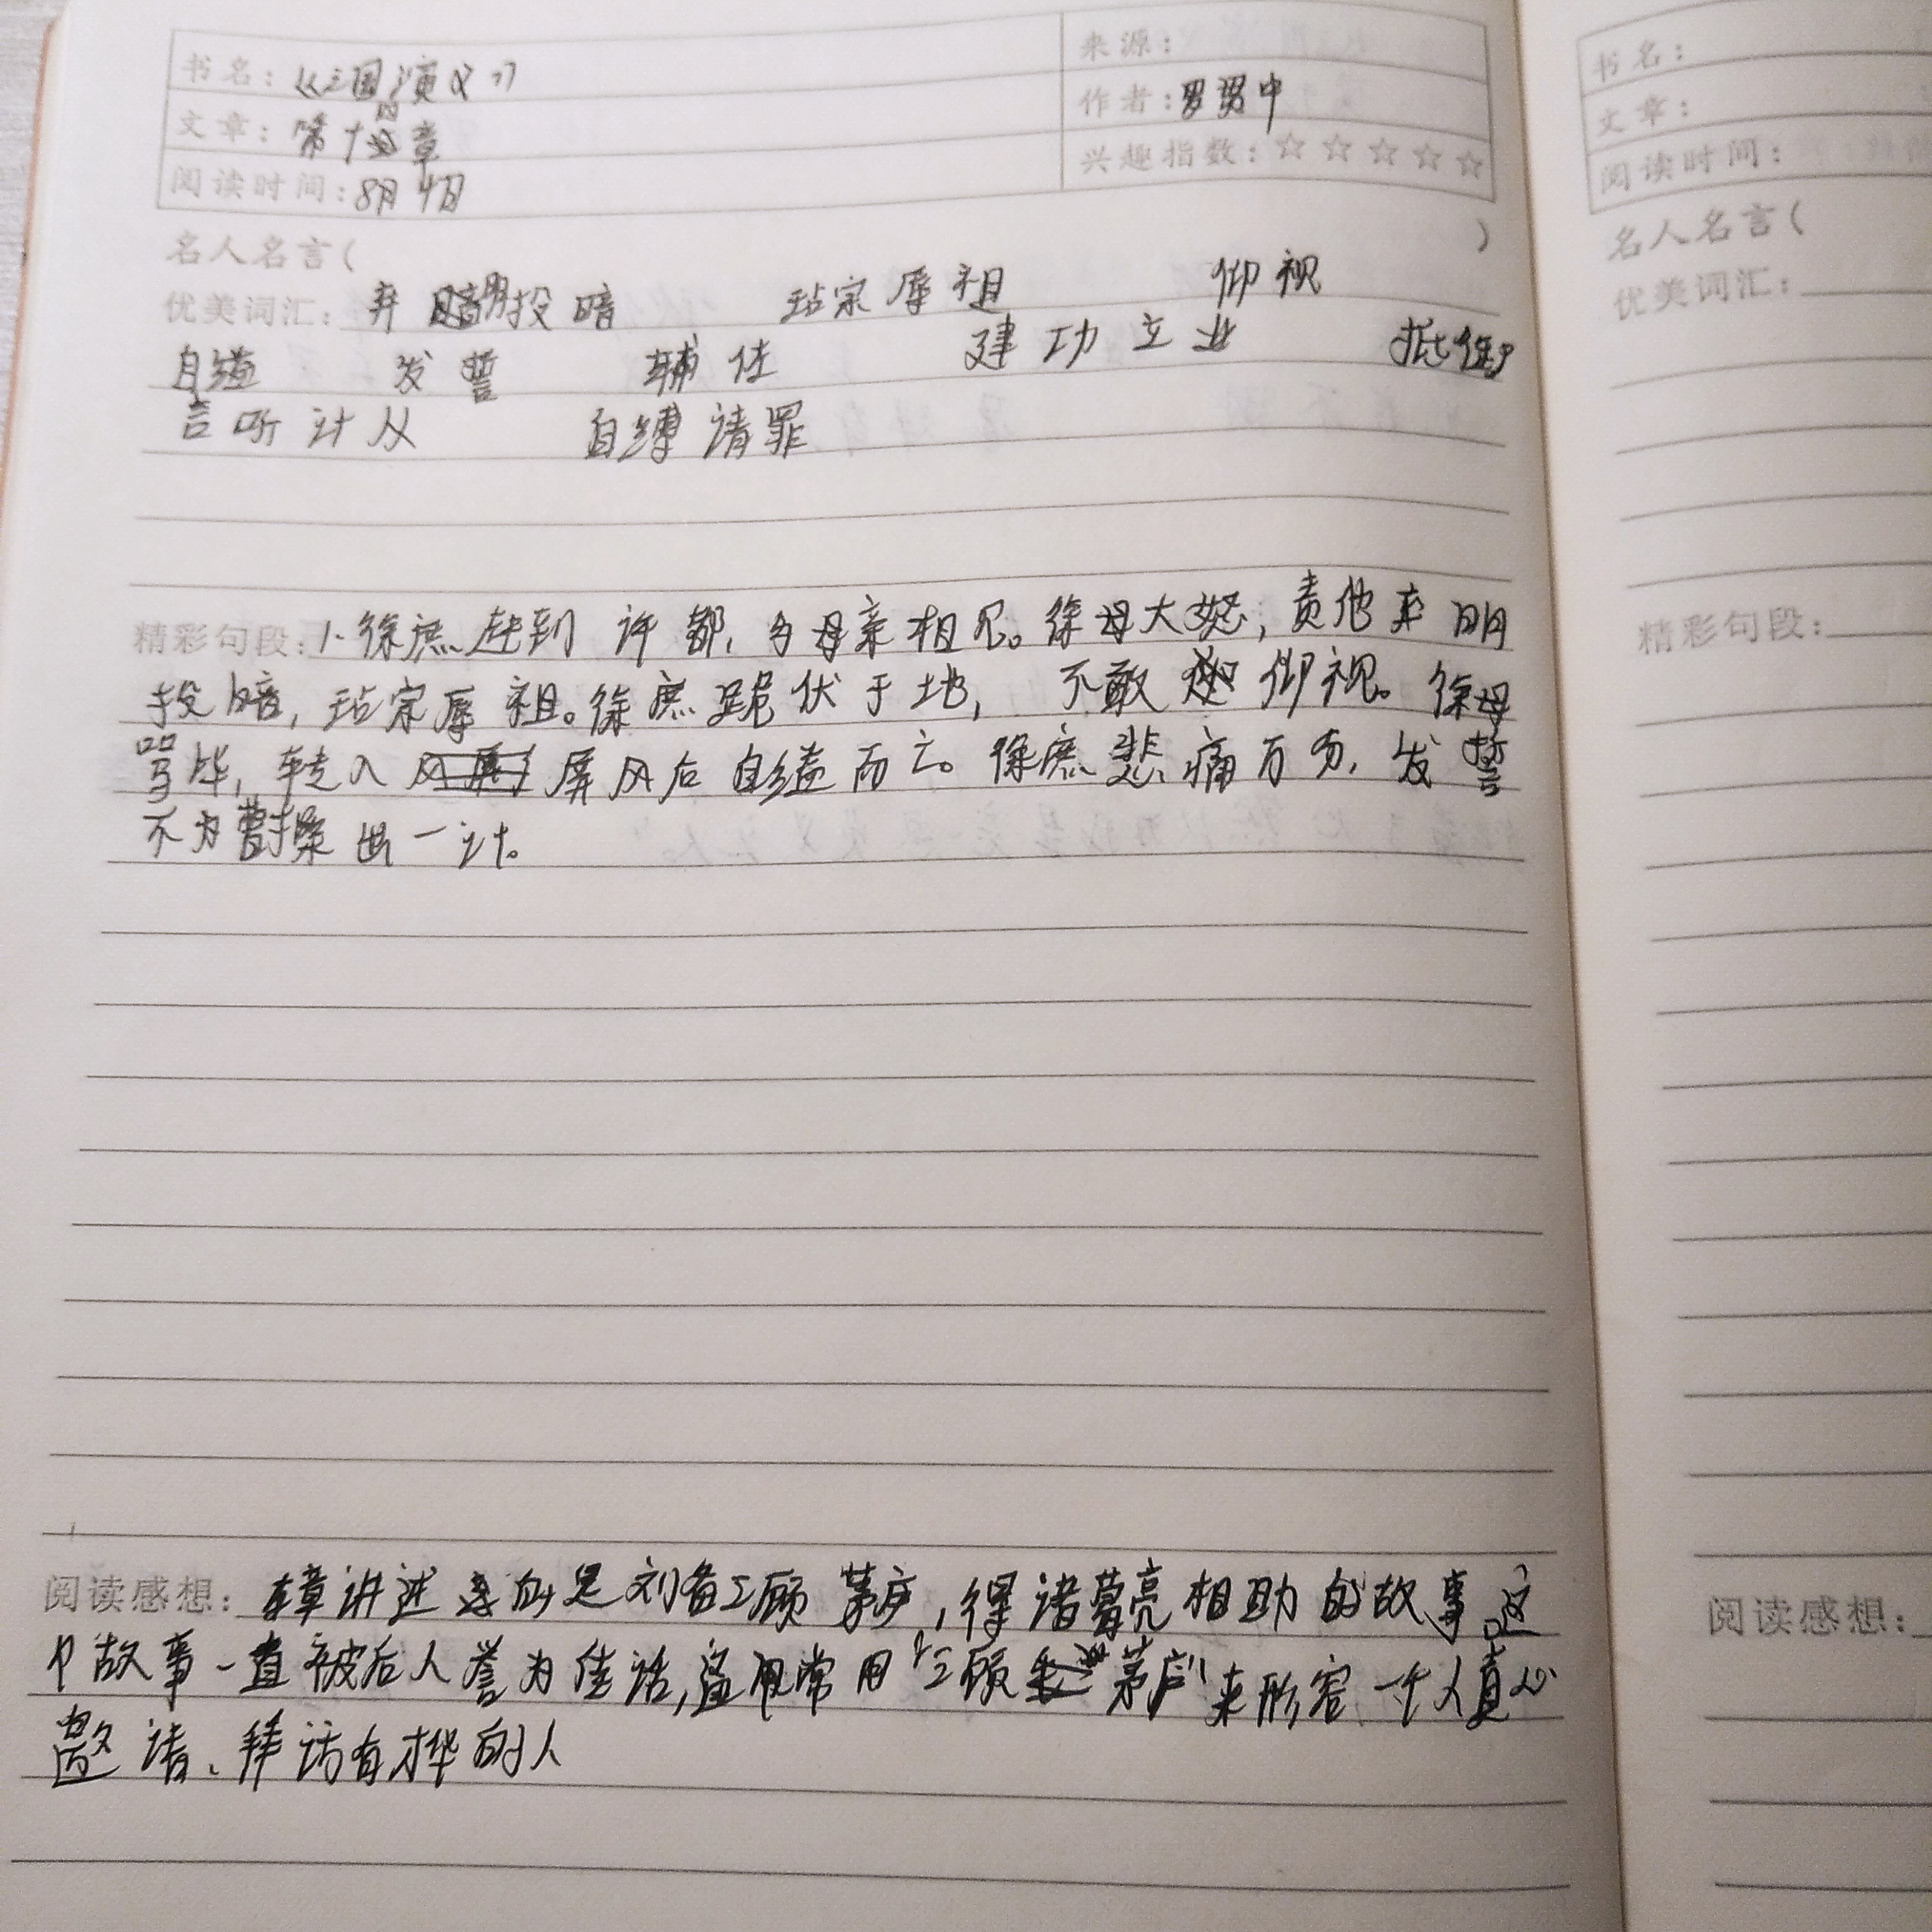 书名：《三国演义》
来源：
文章：第十四章
作者：罗贯中
阅读时间：8月4日
兴趣指数：☆☆☆☆☆
名人名言（ ）
优美词汇：弃明投暗 玷宗辱祖 仰视
自缢 发誓 辅佐 建功立业 抵御
言听计从 自缚请罪
精彩句段：1.徐庶赶到许都，与母亲相见。徐母大怒，责他弃明
投暗，玷宗辱祖。徐庶跪伏于地，不敢仰视。徐母
骂毕，转入屏风后自缢而亡。徐庶悲痛万分，发誓
不为曹操出一计。
阅读感想：本章讲述的是刘备三顾茅庐，得诸葛亮相助的故事。这
个故事一直被后人誉为佳话，常用“三顾茅庐”来形容一个人真心
邀请、拜访有才华的人
书名：
文章：
阅读时间：
名人名言（
优美词汇：
精彩句段：
阅读感想：